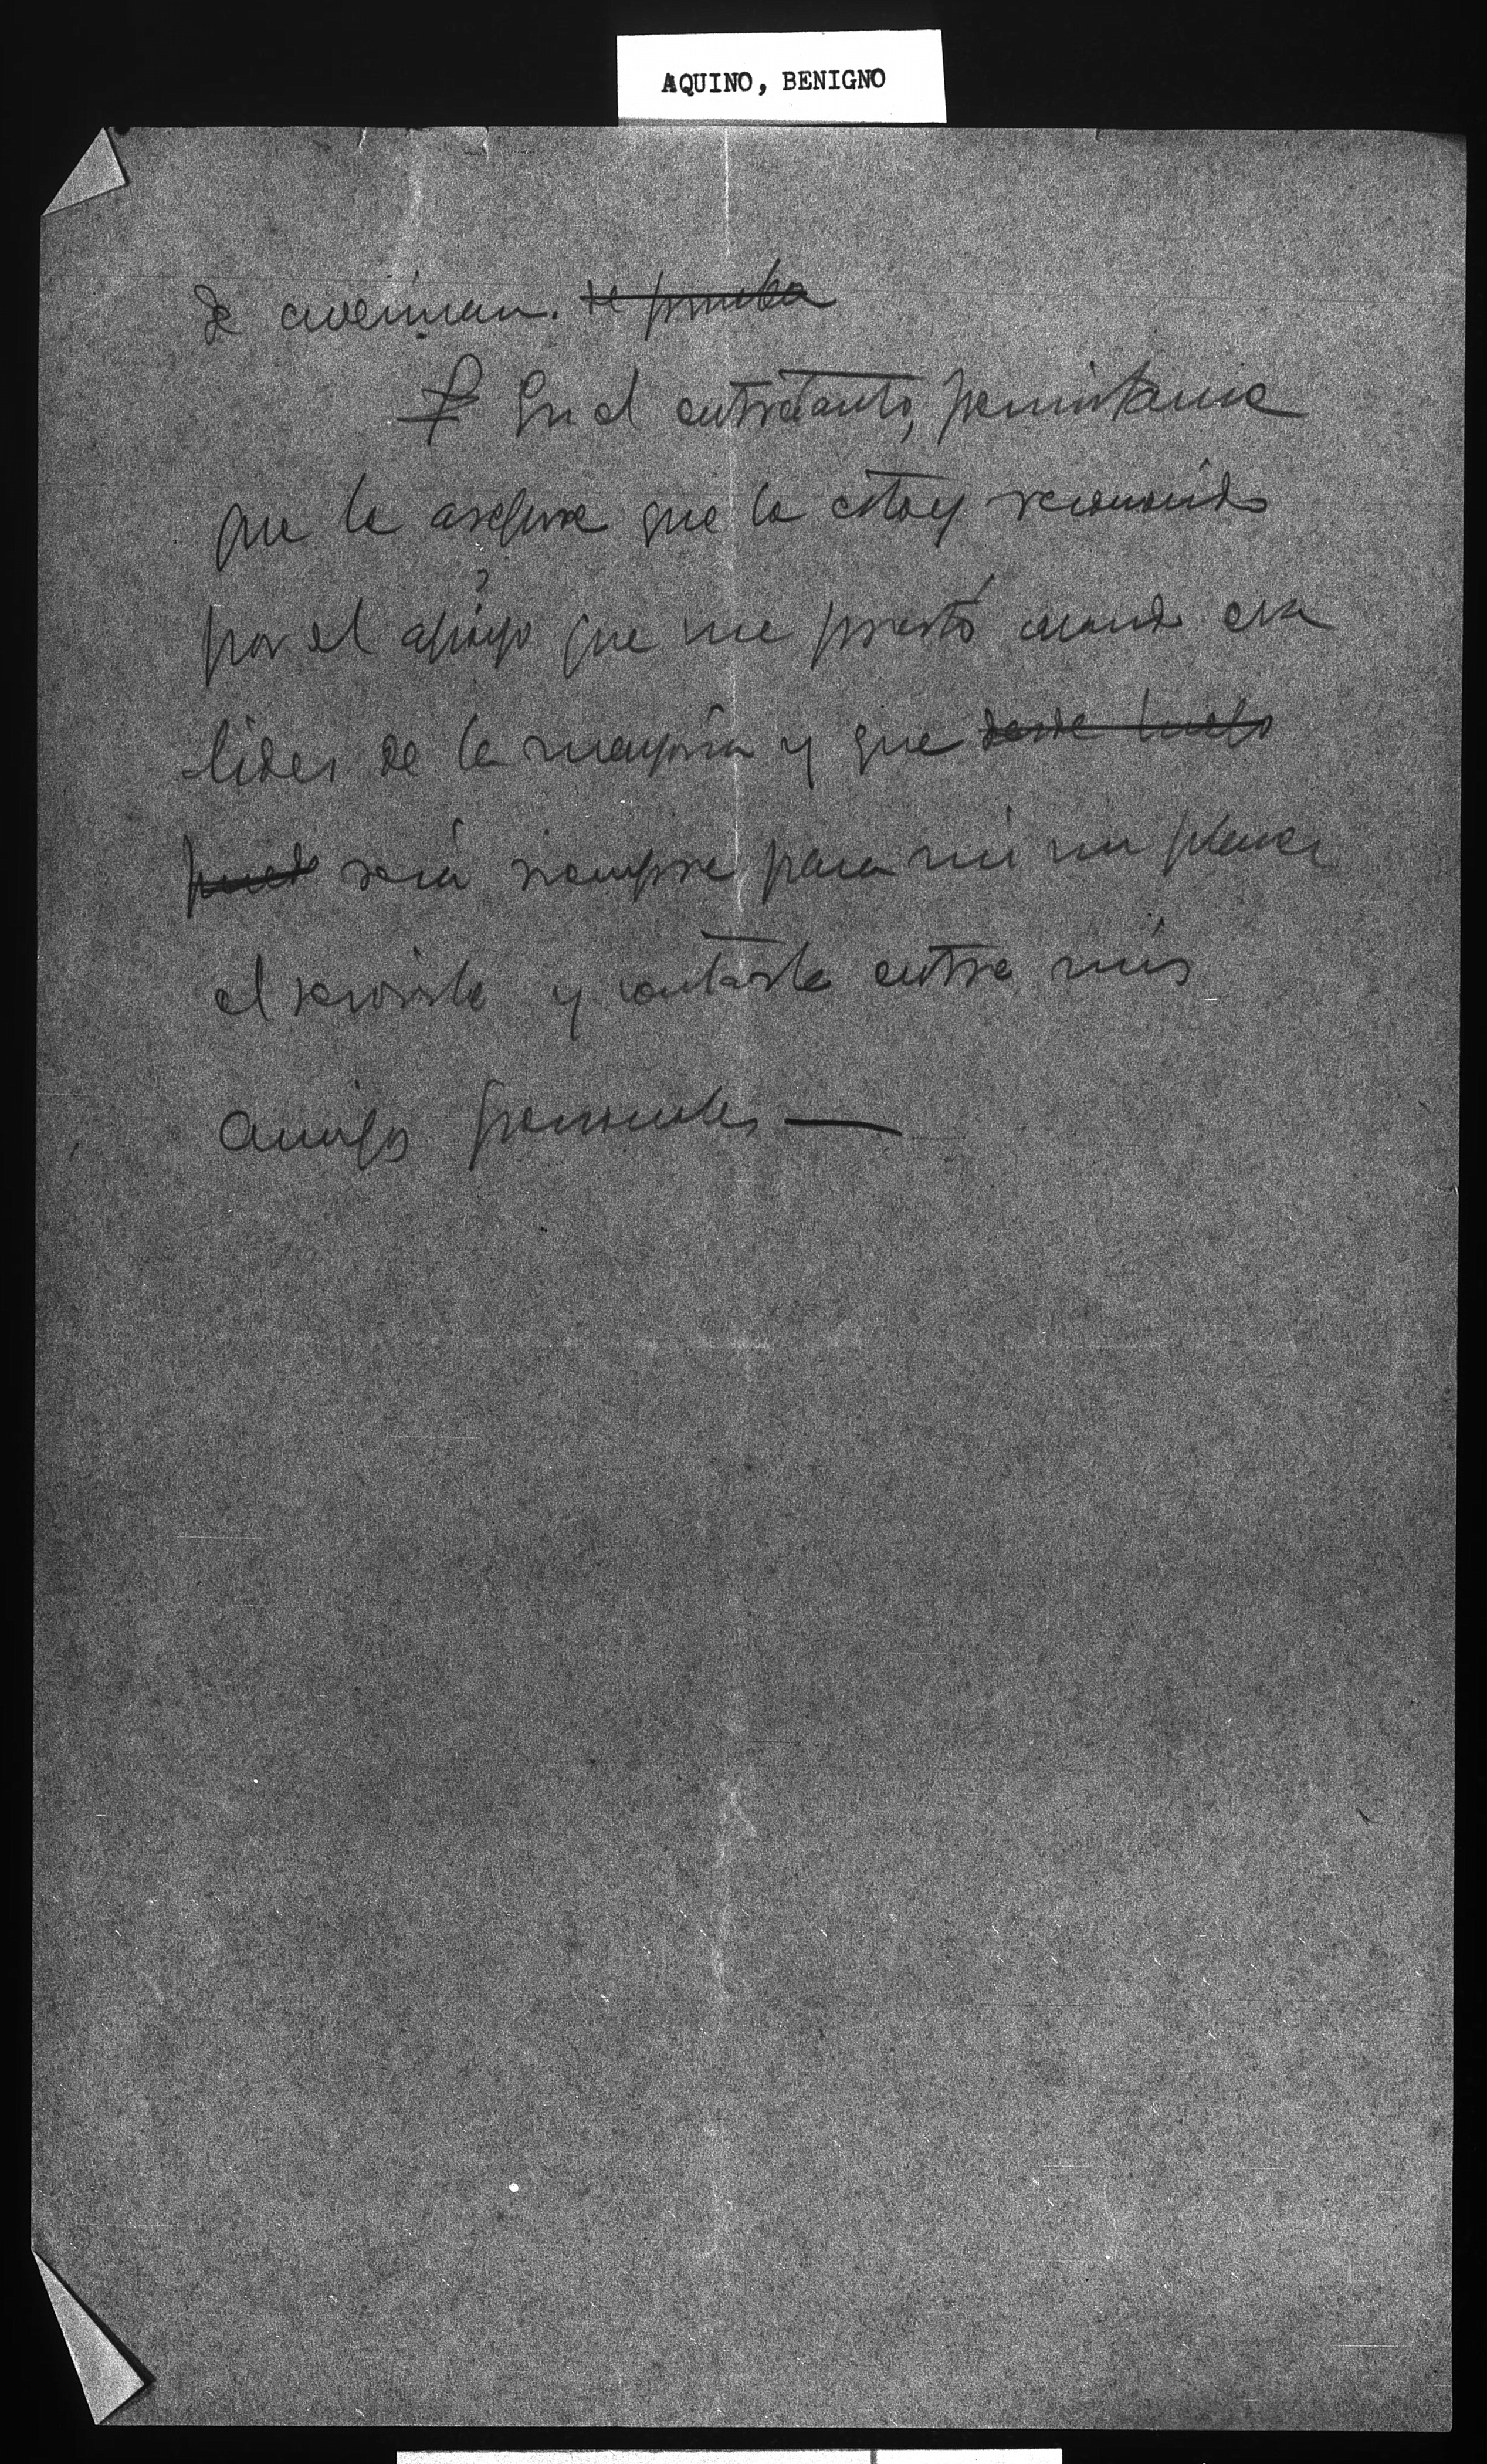 AQUINO, BENIGNO
se avecinan. te prueba
En el entretanto, permitame
que le asegure que le estoy reconocido
por el apoyo que me prestó cuando era
lider de la mayoria y que desde luego
puedo será siempre para mí un placer
el servirle y contarle entre mis
amigos personales —